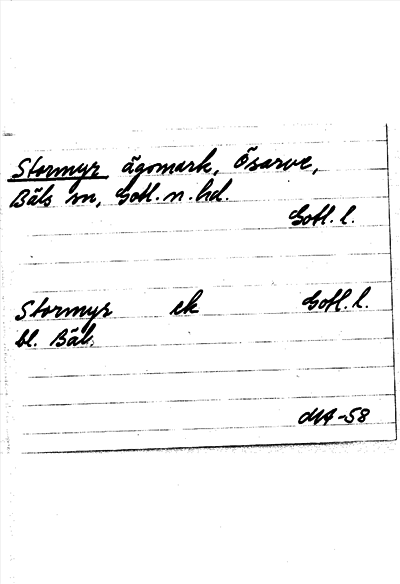 Stormyr ägomark, Ösarve,
Bäls sn, Gotl. n. hd.
Gotl. l.
Stormyr ek Gotl. l.
bl. Bäl.
dM4-58